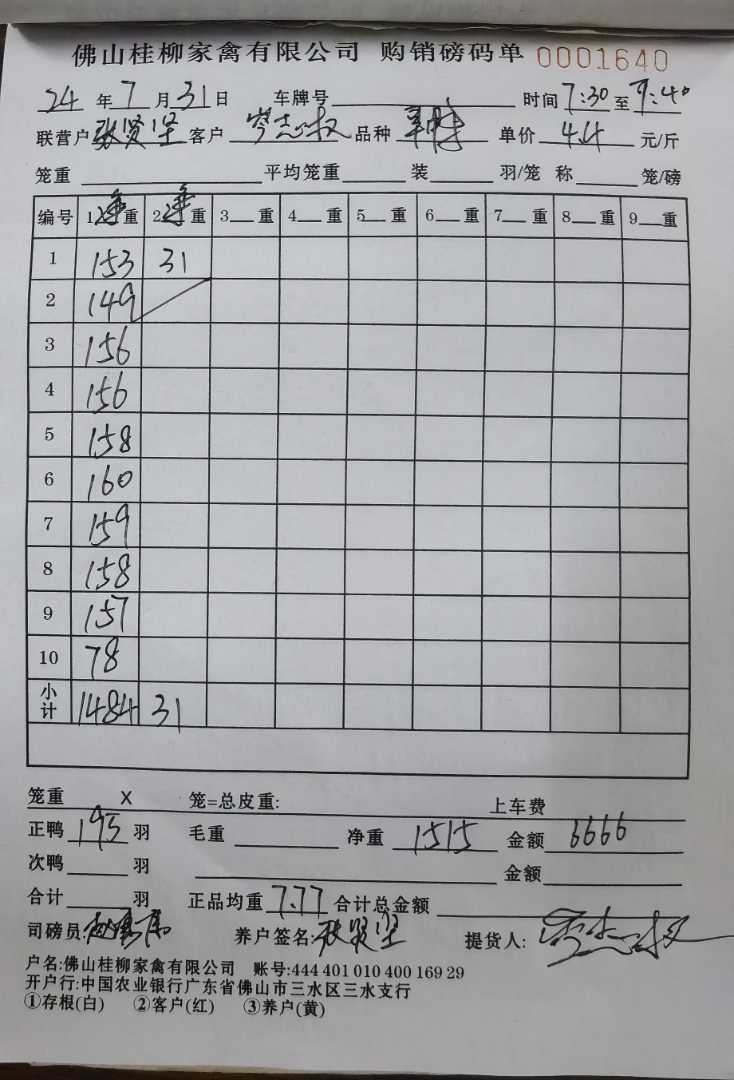 佛山桂柳家禽有限公司 购销磅码单 0001640
24年7月31日 车牌号 时间7:30至9:40
联营户张贤坚客户岑志权品种 单价4.4元/斤
笼重 平均笼重 装 羽/笼 称 笼/磅
编号 1净重 2净重 3 重 4 重 5 重 6 重 7 重 8 重 9 重
1 153 31
2 149
3 156
4 156
5 158
6 160
7 159
8 158
9 157
10 78
小计 1484 31
笼重 X 笼=总皮重: 上车费
正鸭195羽 毛重 净重1515 金额6666
次鸭 羽 金额
合计 羽 正品均重7.77合计总金额
司磅员: 养户签名:张贤坚 提货人:岑志权
户名:佛山桂柳家禽有限公司 账号:444 401 010 400 169 29
开户行:中国农业银行广东省佛山市三水区三水支行
①存根(白) ②客户(红) ③养户(黄)